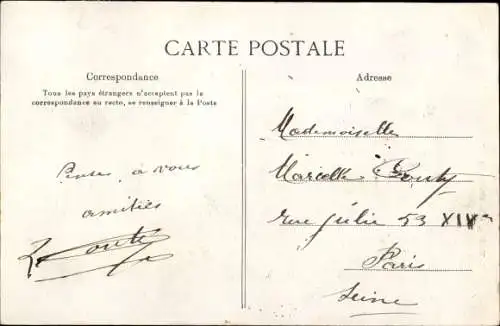 CARTE POSTALE
Correspondance
Tous les pays étrangers n'acceptent pas la
correspondance au recto, se renseigner à la Poste
Adresse
à vous
amitiés
Mademoiselle
Marcelle
rue Julie 53 XIV
Paris
Seine